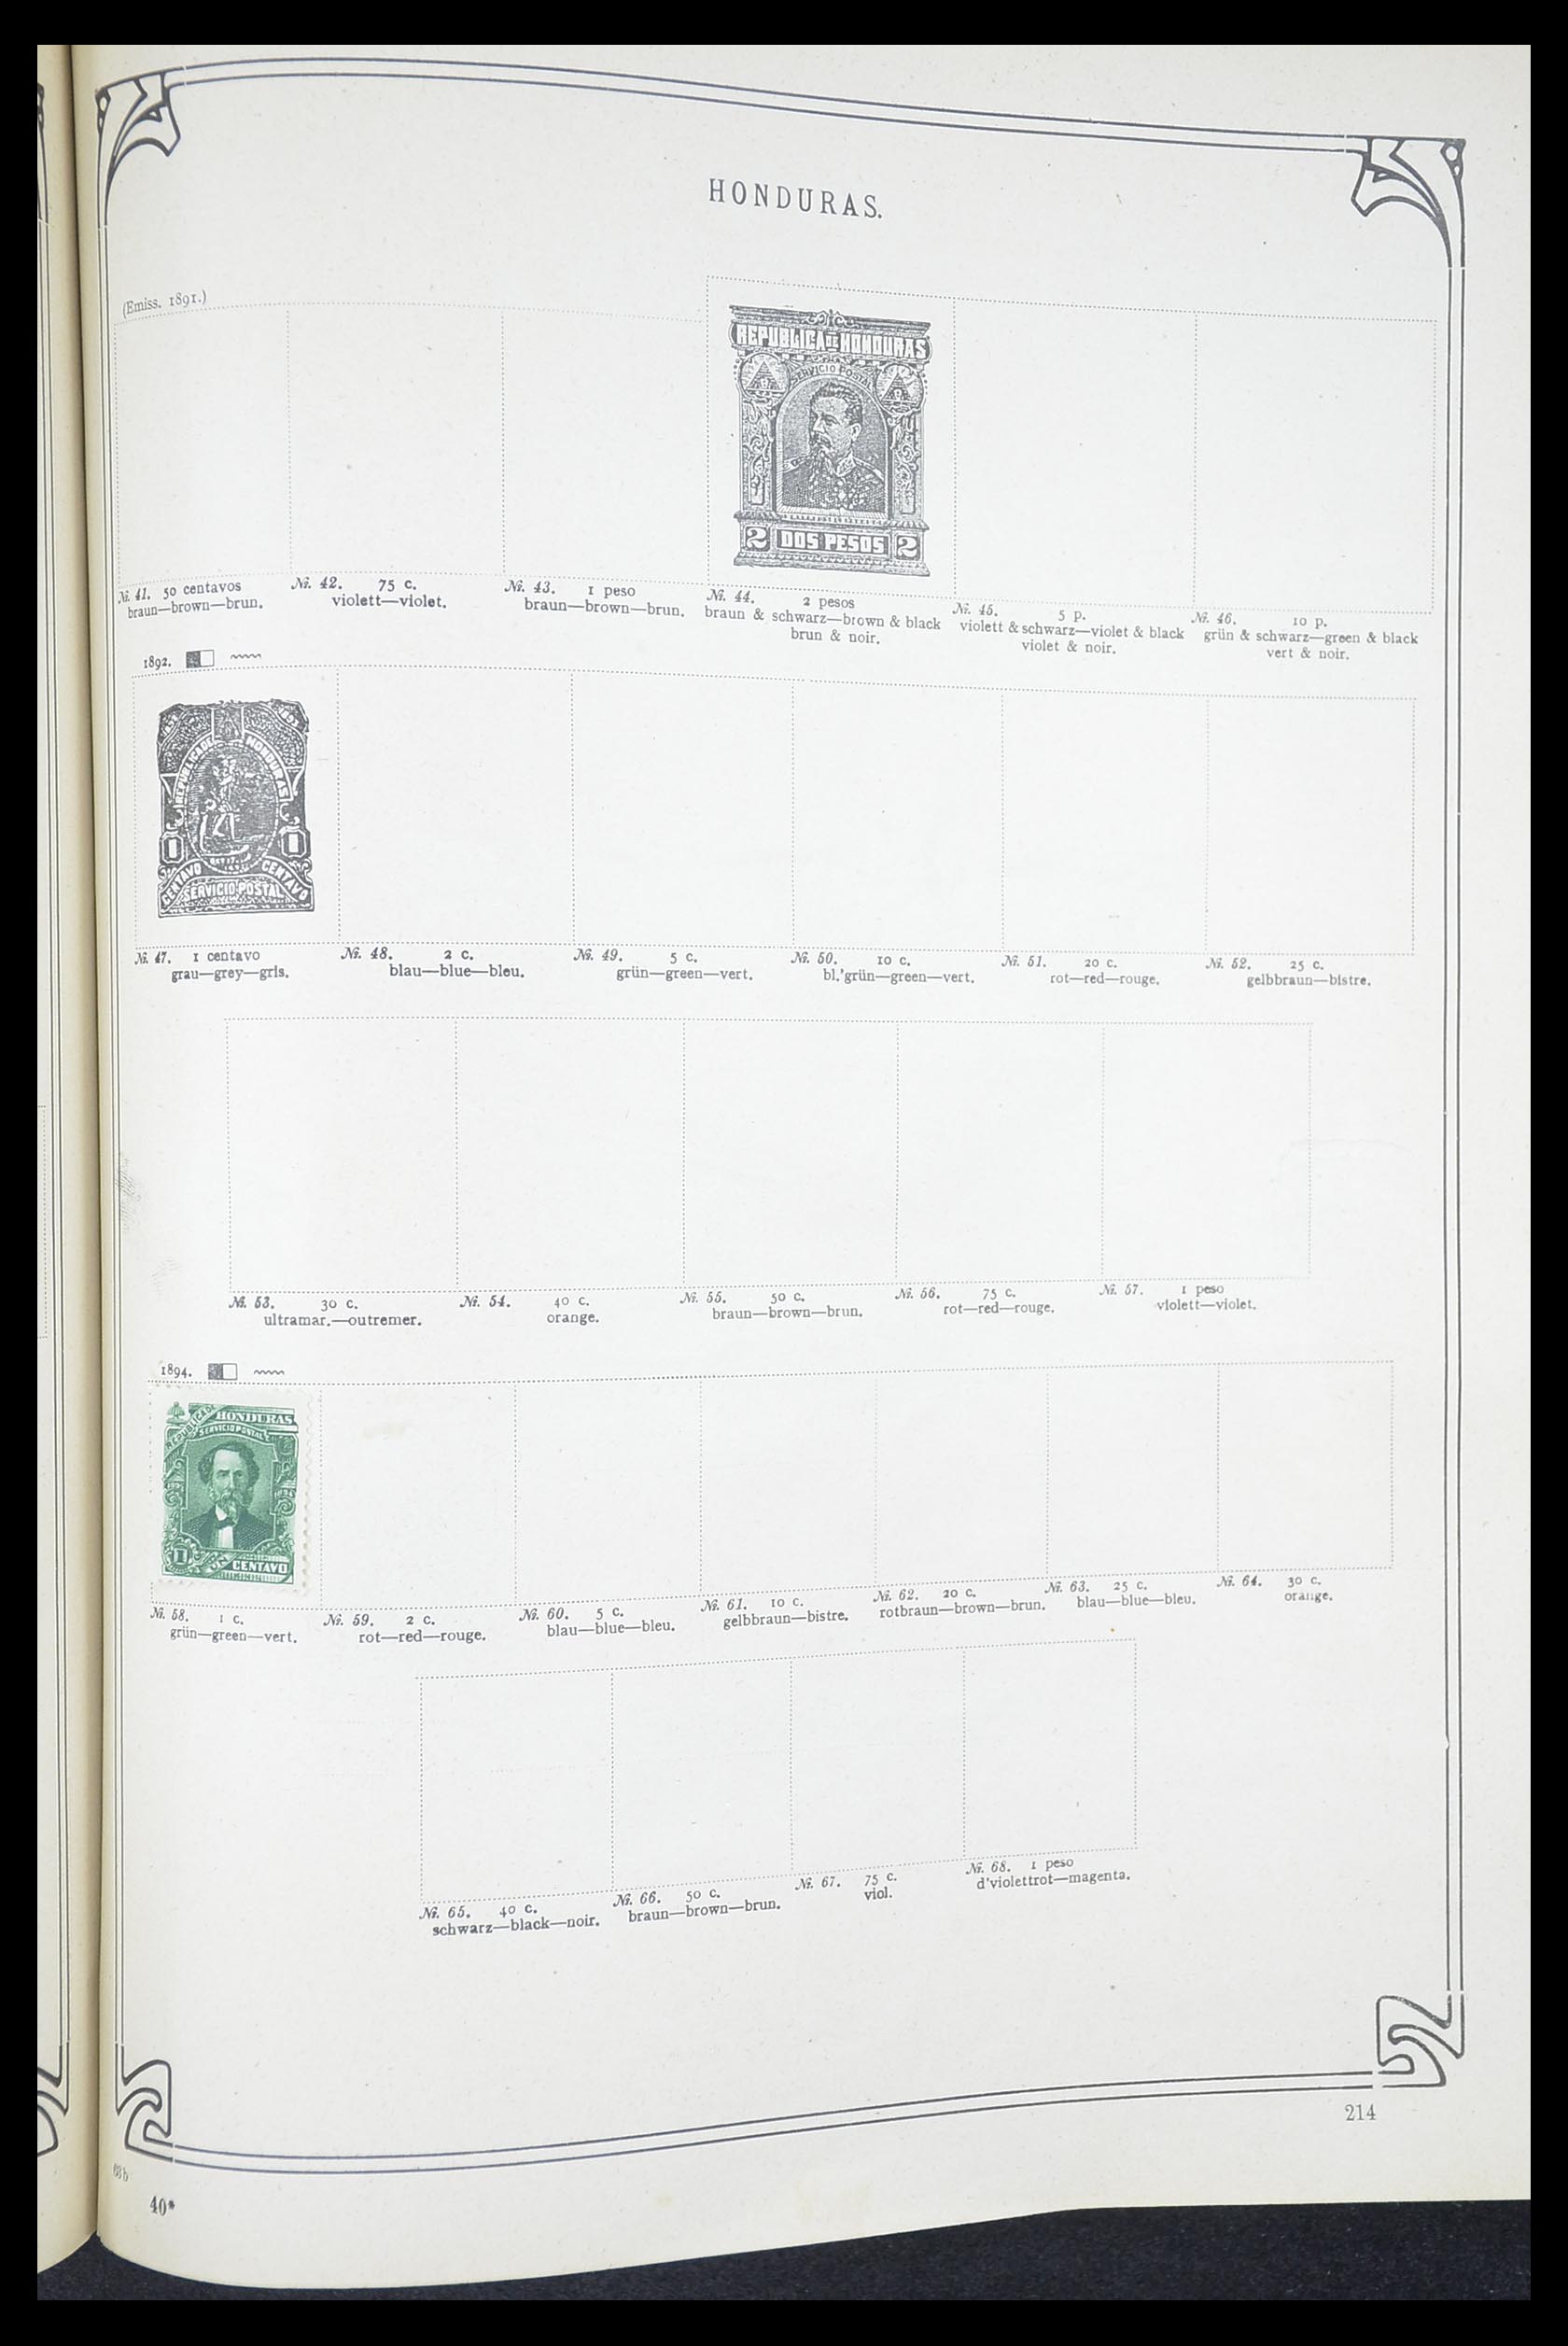 HONDURAS.
(Emiss. 1891.)
REPUBLICA DE HONDURAS
SERVICIO POSTAL
2 DOS PESOS 2
№. 41. 50 centavos
braun—brown—brun.
№. 42. 75 c.
violett—violet.
№. 43. 1 peso
braun—brown—brun.
№. 44. 2 pesos
braun & schwarz—brown & black
brun & noir.
№. 45. 5 p.
violett & schwarz—violet & black
violet & noir.
№. 46. 10 p.
grün & schwarz—green & black
vert & noir.
1892.
REPUBLICA DE HONDURAS
1 1
CENTAVO CENTAVO
SERVICIO POSTAL
№. 47. 1 centavo
grau—grey—gris.
№. 48. 2 c.
blau—blue—bleu.
№. 49. 5 c.
grün—green—vert.
№. 50. 10 c.
bl.'grün—green—vert.
№. 51. 20 c.
rot—red—rouge.
№. 52. 25 c.
gelbbraun—bistre.
№. 53. 30 c.
ultramar.—outremer.
№. 54. 40 c.
orange.
№. 55. 50 c.
braun—brown—brun.
№. 56. 75 c.
rot—red—rouge.
№. 57. 1 peso
violett—violet.
1894.
REPUBLICA DE HONDURAS
SERVICIO POSTAL
1 UN CENTAVO
№. 58. 1 c.
grün—green—vert.
№. 59. 2 c.
rot—red—rouge.
№. 60. 5 c.
blau—blue—bleu.
№. 61. 10 c.
gelbbraun—bistre.
№. 62. 20 c.
rotbraun—brown—brun.
№. 63. 25 c.
blau—blue—bleu.
№. 64. 30 c.
orange.
№. 65. 40 c.
schwarz—black—noir.
№. 66. 50 c.
braun—brown—brun.
№. 67. 75 c.
viol.
№. 68. 1 peso
d'violettrot—magenta.
214
40*